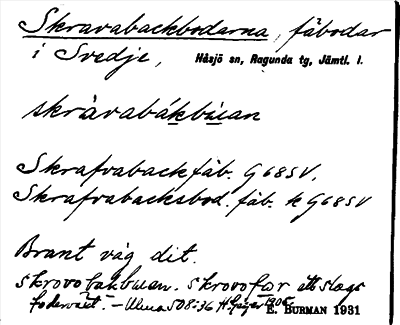 Skravabackbodarna, fäbodar
i Svedje, Håsjö sn, Ragunda tg, Jämtl. l.
skràvabákbùan
Skrafvabackfäb. G68SV,
Skrafvabacksbod. fäb. k G68SV
Brant väg dit.
skrovobakbuan. skrovofor ett slags
foderväxt. – Ulma 508:36 H Geijer 1906
E. BURMAN 1931